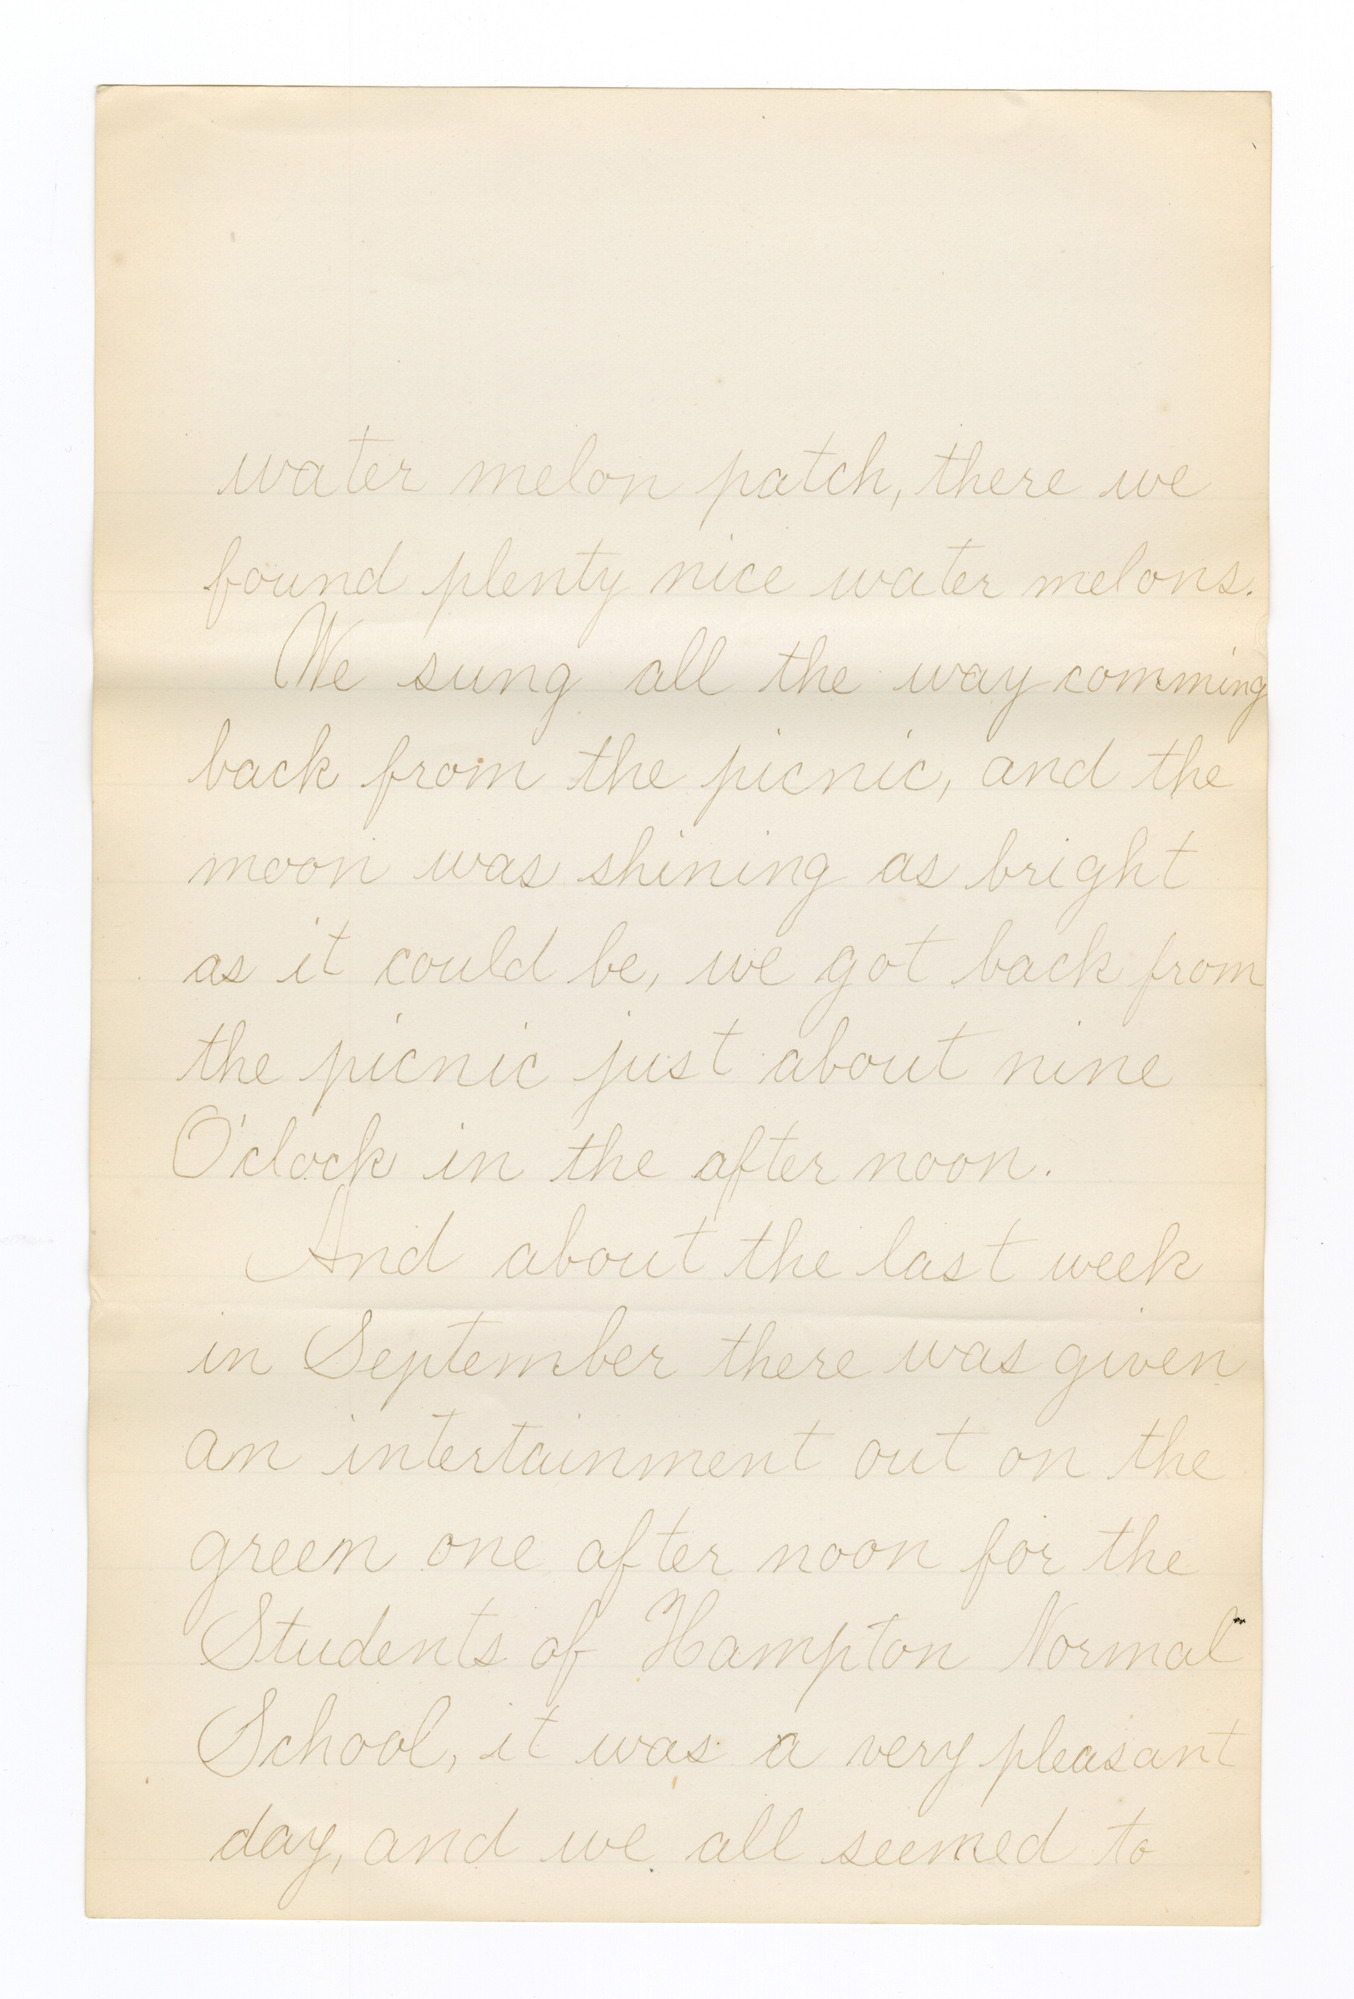 water melon patch, there we
found plenty nice water melons.
We sung all the way comming
back from the picnic, and the
moon was shining as bright
as it could be, we got back from
the picnic just about nine
O'clock in the after noon.
And about the last week
in September there was given
an intertainment out on the
green one after noon for the
Students of Hampton Normal
School, it was a very pleasant
day, and we all seemed to